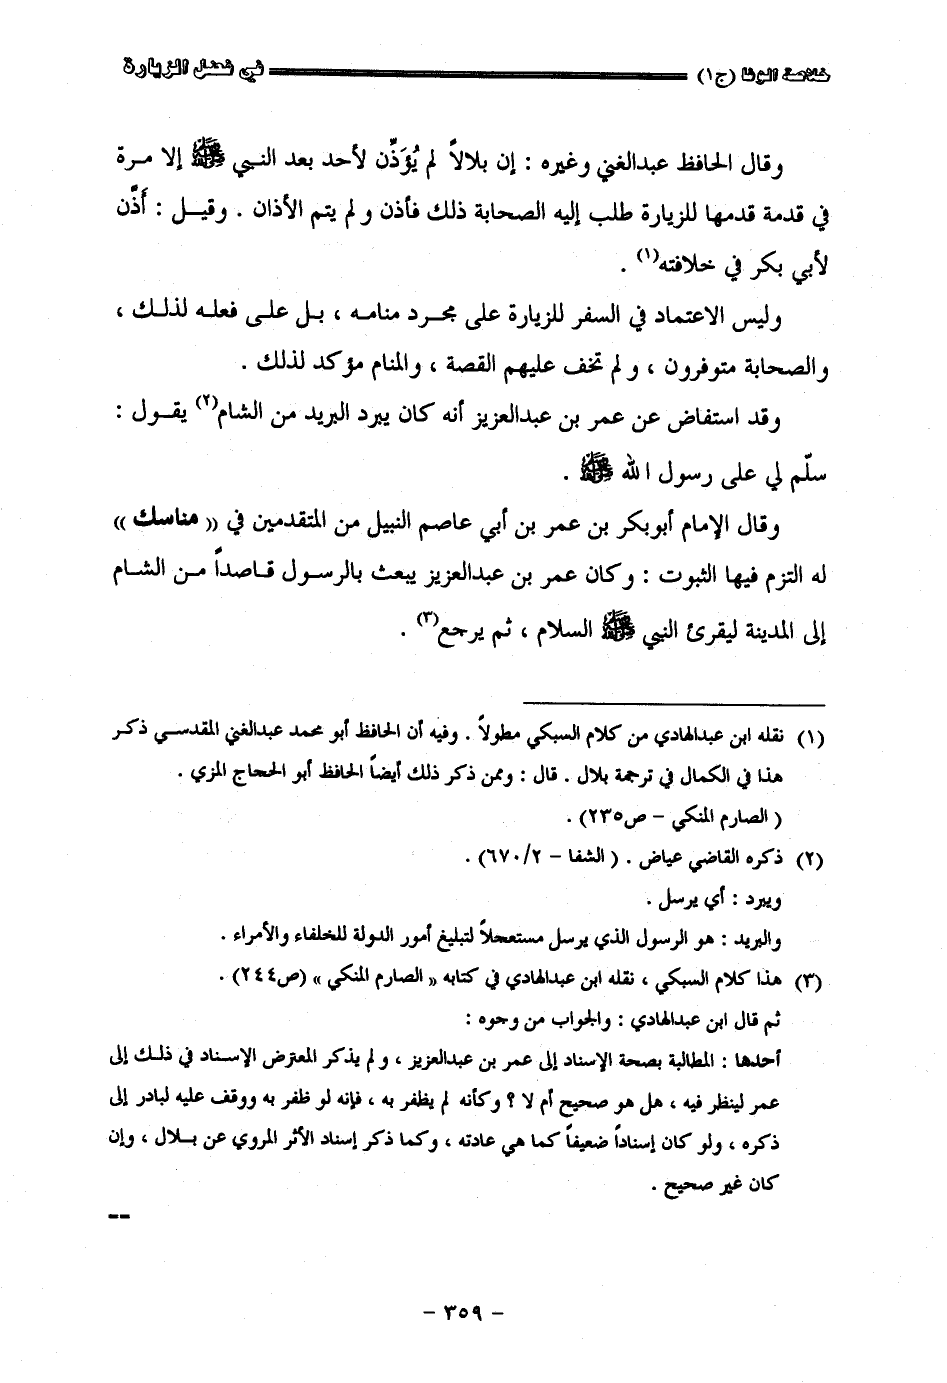 خلاصة الوفا (ج١) في فضل الزيارة
وقال الحافظ عبدالغني وغيره : إن بلالاً لم يُؤَذِّن لأحد بعد النبي ﷺ إلا مرة
في قدمة قدمها للزيارة طلب إليه الصحابة ذلك فأذن ولم يتم الأذان . وقيل : أَذَّن
لأبي بكر في خلافته(١) .
وليس الاعتماد في السفر للزيارة على مجرد منامه ، بل على فعله لذلك ،
والصحابة متوفرون ، ولم تخف عليهم القصة ، والمنام مؤكد لذلك .
وقد استفاض عن عمر بن عبدالعزيز أنه كان يبرد البريد من الشام(٢) يقول :
سلّم لي على رسول الله ﷺ .
وقال الإمام أبوبكر بن عمر بن أبي عاصم النبيل من المتقدمين في « مناسك »
له التزم فيها الثبوت : وكان عمر بن عبدالعزيز يبعث بالرسول قاصداً من الشام
إلى المدينة ليقرئ النبي ﷺ السلام ، ثم يرجع(٣) .
(١) نقله ابن عبدالهادي من كلام السبكي مطولاً . وفيه أن الحافظ أبو محمد عبدالغني المقدسي ذكر
هذا في الكمال في ترجمة بلال . قال : وممن ذكر ذلك أيضاً الحافظ أبو الحجاج المزي .
( الصارم المنكي – ص٢٣٥) .
(٢) ذكره القاضي عياض . ( الشفا – ٦٧٠/٢) .
ويبرد : أي يرسل .
والبريد : هو الرسول الذي يرسل مستعجلاً لتبليغ أمور الدولة للخلفاء والأمراء .
(٣) هذا كلام السبكي ، نقله ابن عبدالهادي في كتابه « الصارم المنكي » (ص٢٤٤) .
ثم قال ابن عبدالهادي : والجواب من وجوه :
أحدها : المطالبة بصحة الإسناد إلى عمر بن عبدالعزيز ، ولم يذكر المعترض الإسناد في ذلك إلى
عمر لينظر فيه ، هل هو صحيح أم لا ؟ وكأنه لم يظفر به ، فإنه لو ظفر به ووقف عليه لبادر إلى
ذكره ، ولو كان إسناداً ضعيفاً كما هي عادته ، وكما ذكر إسناد الأثر المروي عن بلال ، وإن
كان غير صحيح .
--
- ٣٥٩ -